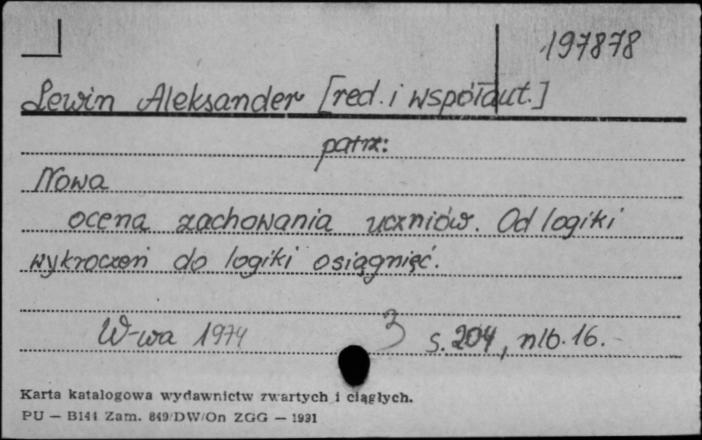 197878
Lewin Aleksander [red. i współaut.]
patrz:
Nowa
ocena zachowania uczniów. Od logiki
wykroczeń do logiki osiągnięć.
W-wa 1974 3 s. 204, nlb. 16.
Karta katalogowa wydawnictw zwartych i ciągłych.
PU — B141 Zam. 849/DW/On ZGG — 1991